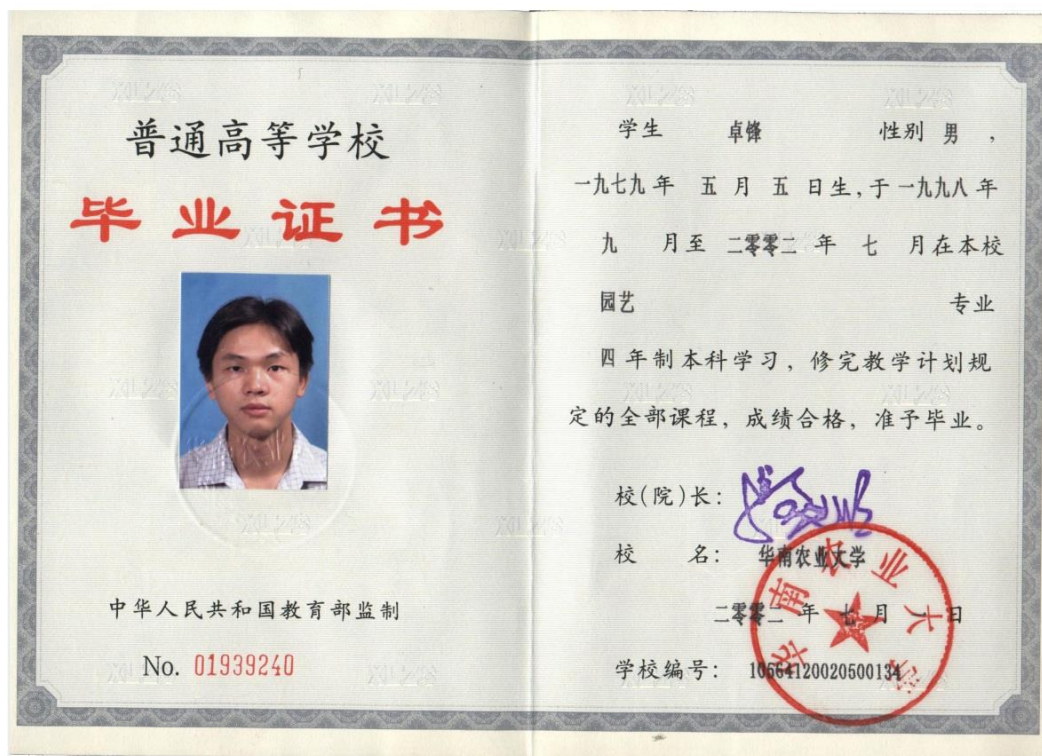 普通高等学校
毕业证书
中华人民共和国教育部监制
No. 01939240
学生 卓锋 性别 男 ，
一九七九 年 五 月 五 日生，于 一九九八 年
九 月至 二零零二 年 七 月在本校
园艺 专业
四 年制本科学习，修完教学计划规
定的全部课程，成绩合格，准予毕业。
校(院)长：
校 名： 华南农业大学
二零零二 年 七 月 六 日
学校编号： 10564120020500134
华南农业大学